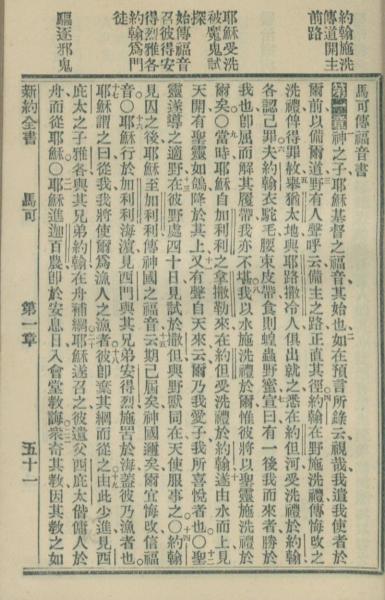 約翰施洗
傳道開主
前路
耶穌受洗
被魔鬼試
探
始傳福音
召彼得安
得烈雅各
約翰爲門
徒
驅逐邪鬼
馬可傳福音書
第一章 神之子耶穌基督之福音其始也如在預言所錄云視哉我遣我使者於
爾前以備爾道野有人聲呼云備主之路正直其徑約翰在野施洗禮傳悔改之
洗禮俾得罪赦舉猶太地與耶路撒冷人俱出就之悉在約但河受洗禮於約翰
各認己罪夫約翰衣駝毛腰束皮帶食則蝗蟲野蜜宣曰有一後我而來者勝於
我也卽屈而解其履帶我亦不堪我以水施洗禮於爾惟彼將以聖靈施洗禮於
爾矣○當時耶穌自加利利之拿撒勒來在約但受洗禮於約翰遂由水而上見
天開有聖靈如鴿降於其上又有聲自天來云爾乃我愛子我所喜悅者也○聖
靈遂導之適野在彼野處四十日見試於撒但與野獸同在天使服事之○約翰
見囚之後耶穌至加利利傳神國之福音云期已屆矣神國邇矣爾宜悔改信福
音○耶穌行於加利利海濱見西門與其兄弟安得烈施罟於海蓋彼乃漁者也
耶穌謂之曰從我我將使爾爲漁人之漁者彼卽棄其網而從之由此少進見西
庇太之子雅各與其兄弟約翰在舟補網耶穌遂召之彼遺父西庇太偕傭人於
舟而從耶穌○耶穌進迦百農卽於安息日入會堂教誨衆奇其教因其教之如
新約全書 馬可 第一章 五十一